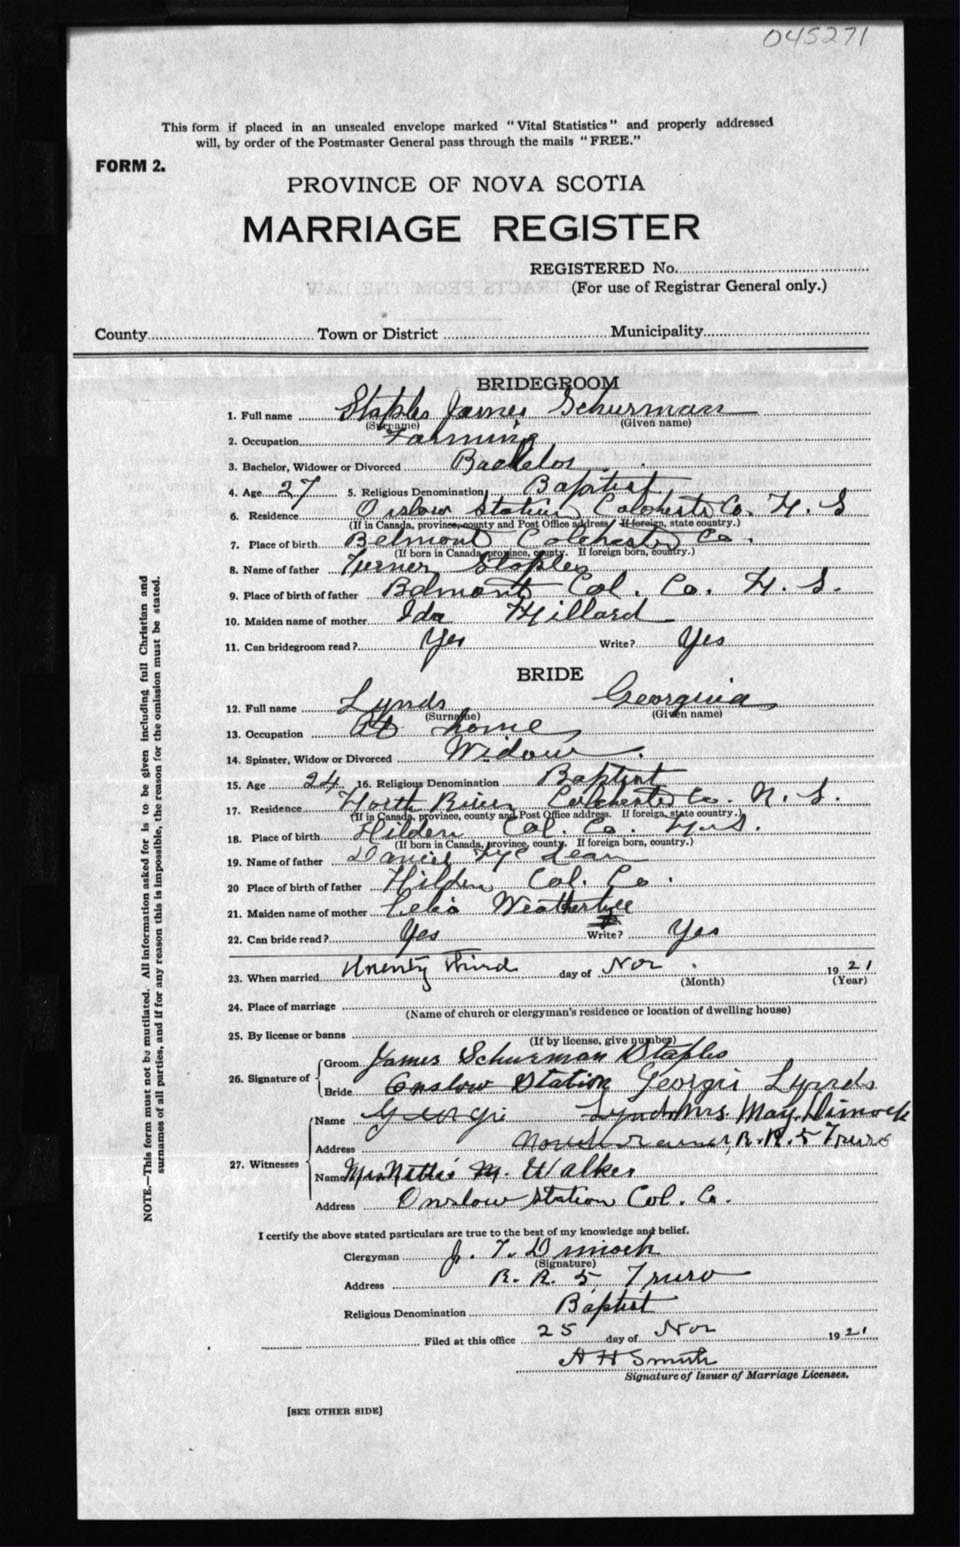 045271
This form if placed in an unsealed envelope marked "Vital Statistics" and properly addressed
will, by order of the Postmaster General pass through the mails "FREE."
FORM 2.
PROVINCE OF NOVA SCOTIA
MARRIAGE REGISTER
REGISTERED No.
(For use of Registrar General only.)
County Town or District Municipality
BRIDEGROOM
1. Full name Staples James Schurman
(Surname) (Given name)
2. Occupation Farming
3. Bachelor, Widower or Divorced Bachelor
4. Age 27 5. Religious Denomination Baptist
6. Residence Onslow Station Colchester Co. N. S
(If in Canada, province, county and Post Office address. If foreign, state country.)
7. Place of birth Belmont Colchester Co.
(If born in Canada, province, county. If foreign born, country.)
8. Name of father Turner Staples
9. Place of birth of father Belmont Col. Co. N. S.
10. Maiden name of mother Ida Hillard
11. Can bridegroom read? Yes Write? Yes
BRIDE
12. Full name Lynds Georgina
(Surname) (Given name)
13. Occupation At home
14. Spinster, Widow or Divorced Widow.
15. Age 24 16. Religious Denomination Baptist
17. Residence North River Colchester Co. N. S.
(If in Canada, province, county and Post Office address. If foreign, state country.)
18. Place of birth Hilden Col. Co. N. S.
(If born in Canada, province, county. If foreign born, country.)
19. Name of father Daniel Mc Lean
20 Place of birth of father Hilden Col. Co.
21. Maiden name of mother Celia
22. Can bride read? Yes Write? Yes
23. When married Twenty third day of Nov. 1921
(Month) (Year)
24. Place of marriage
(Name of church or clergyman's residence or location of dwelling house)
25. By license or banns
(If by license, give number)
26. Signature of
Groom James Schurman Staples
Bride Onslow Station Georgie Lynds
27. Witnesses
Name Georgie Lynds Mrs May Dimock
Address R. R. 5 Truro
Name Mrs Nettie M. Walker
Address Onslow Station Col. Co.
I certify the above stated particulars are true to the best of my knowledge and belief.
Clergyman J. T. Dimock
(Signature)
Address R. R. 5, Truro
Religious Denomination Baptist
Filed at this office 25 day of Nov 1921
A H Smith
Signature of Issuer of Marriage Licenses.
[SEE OTHER SIDE]
NOTE.—This form must not be mutilated. All information asked for is to be given including full Christian and
surnames of all parties, and if for any reason this is impossible, the reason for the omission must be stated.